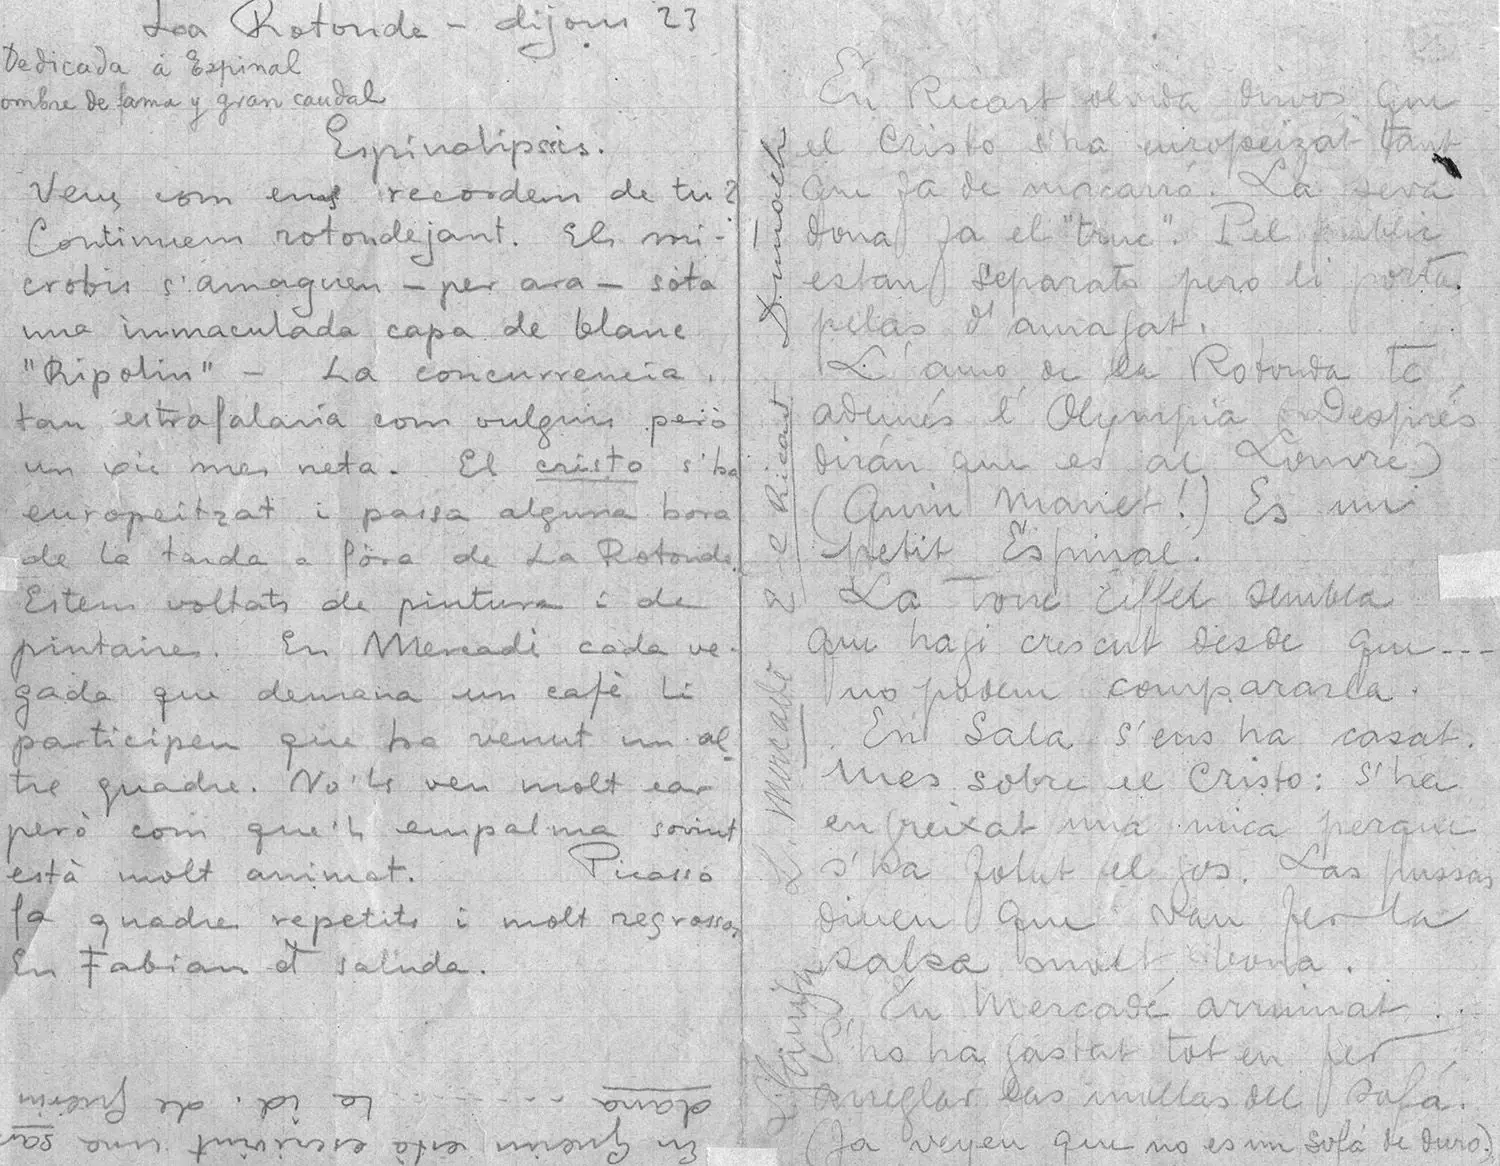 La Rotonde - dijous 23
Dedicada á Espinal
ombre de fama y gran caudal
Espinalipsis.
Veus com ens recordem de tu?
Continuem rotondejant. Els mi-
crobis s'amaguen - per ara - sota
una immaculada capa de blanc
"Ripolin" - La concurrencia,
tan estrafalaria com vulguis però
un xic mes neta. El cristo s'ha
europeitzat i passa alguna hora
de la tarda a fòra de La Rotonde.
Estem voltats de pintura i de
pintaires. En Mercadé cada ve-
gada que demana un café li
participen que ha venut un al-
tre quadre. No'ls ven molt car
però com que'ls empalma sovint
està molt animat. Picasso
fa quadres repetits i molt regrossos.
En Fabian et saluda.
En Guerin està escrivint una sar
dana ........ la id. de Guerin
En Ricart olvida dirvos que
el Cristo s'ha europeizat tant
que fa de macarró. La seva
dona fa el "truc". Pel públic
estan separats pero li porta
pelas d'amagat.
L'amo de la Rotonda té
ademés l'Olympia (Després
dirán que es al Louvre)
(Quin Manet!) Es un
petit Espinal.
La Tour Eiffel sembla
que hagi crescut desde que---
no podem compararla.
En Sala s'ens ha casat.
Mes sobre el Cristo: S'ha
engreixat una mica perque
s'ha fotut el jos. Las pussas
diuen que van fer la
salsa molt bona.
En Mercadé arruinat.
S'ho ha gastat tot en fer
arreglar las mollas del sofá.
(Ja veyen que no es un sofá de duro).
L. Mercadé
E.C Ricart